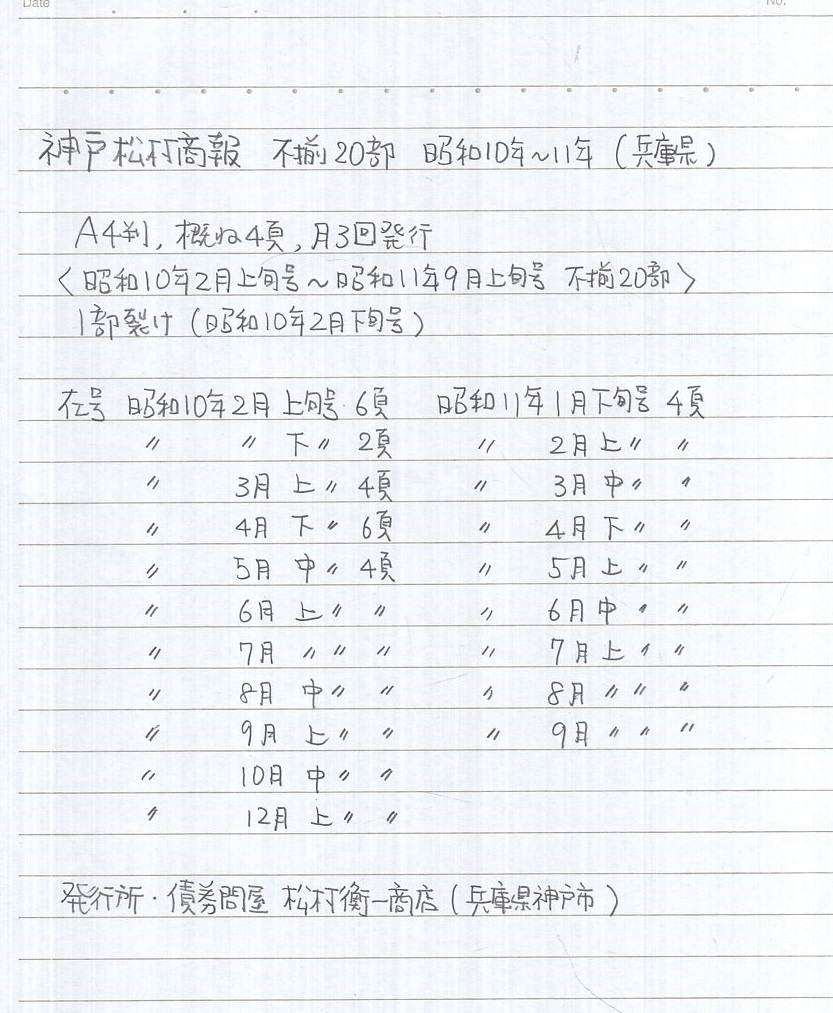 Date
No.
神戸松村商報 不揃20部 昭和10年~11年 (兵庫県)
A4判, 概ね4頁, 月3回発行
〈昭和10年2月上旬号~昭和11年9月上旬号 不揃20部〉
1部裂け (昭和10年2月下旬号)
在号 昭和10年2月 上旬号 6頁 昭和11年1月下旬号 4頁
〃 〃 下〃 2頁 〃 2月上〃 〃
〃 3月 上〃 4頁 〃 3月中〃 〃
〃 4月 下〃 6頁 〃 4月下〃 〃
〃 5月 中〃 4頁 〃 5月上〃 〃
〃 6月 上〃 〃 〃 6月中〃 〃
〃 7月 〃〃 〃 〃 7月上〃 〃
〃 8月 中〃 〃 〃 8月〃〃 〃
〃 9月 上〃 〃 〃 9月〃〃 〃
〃 10月 中〃 〃
〃 12月 上〃 〃
発行所・債券問屋 松村衡一商店 (兵庫県神戸市)